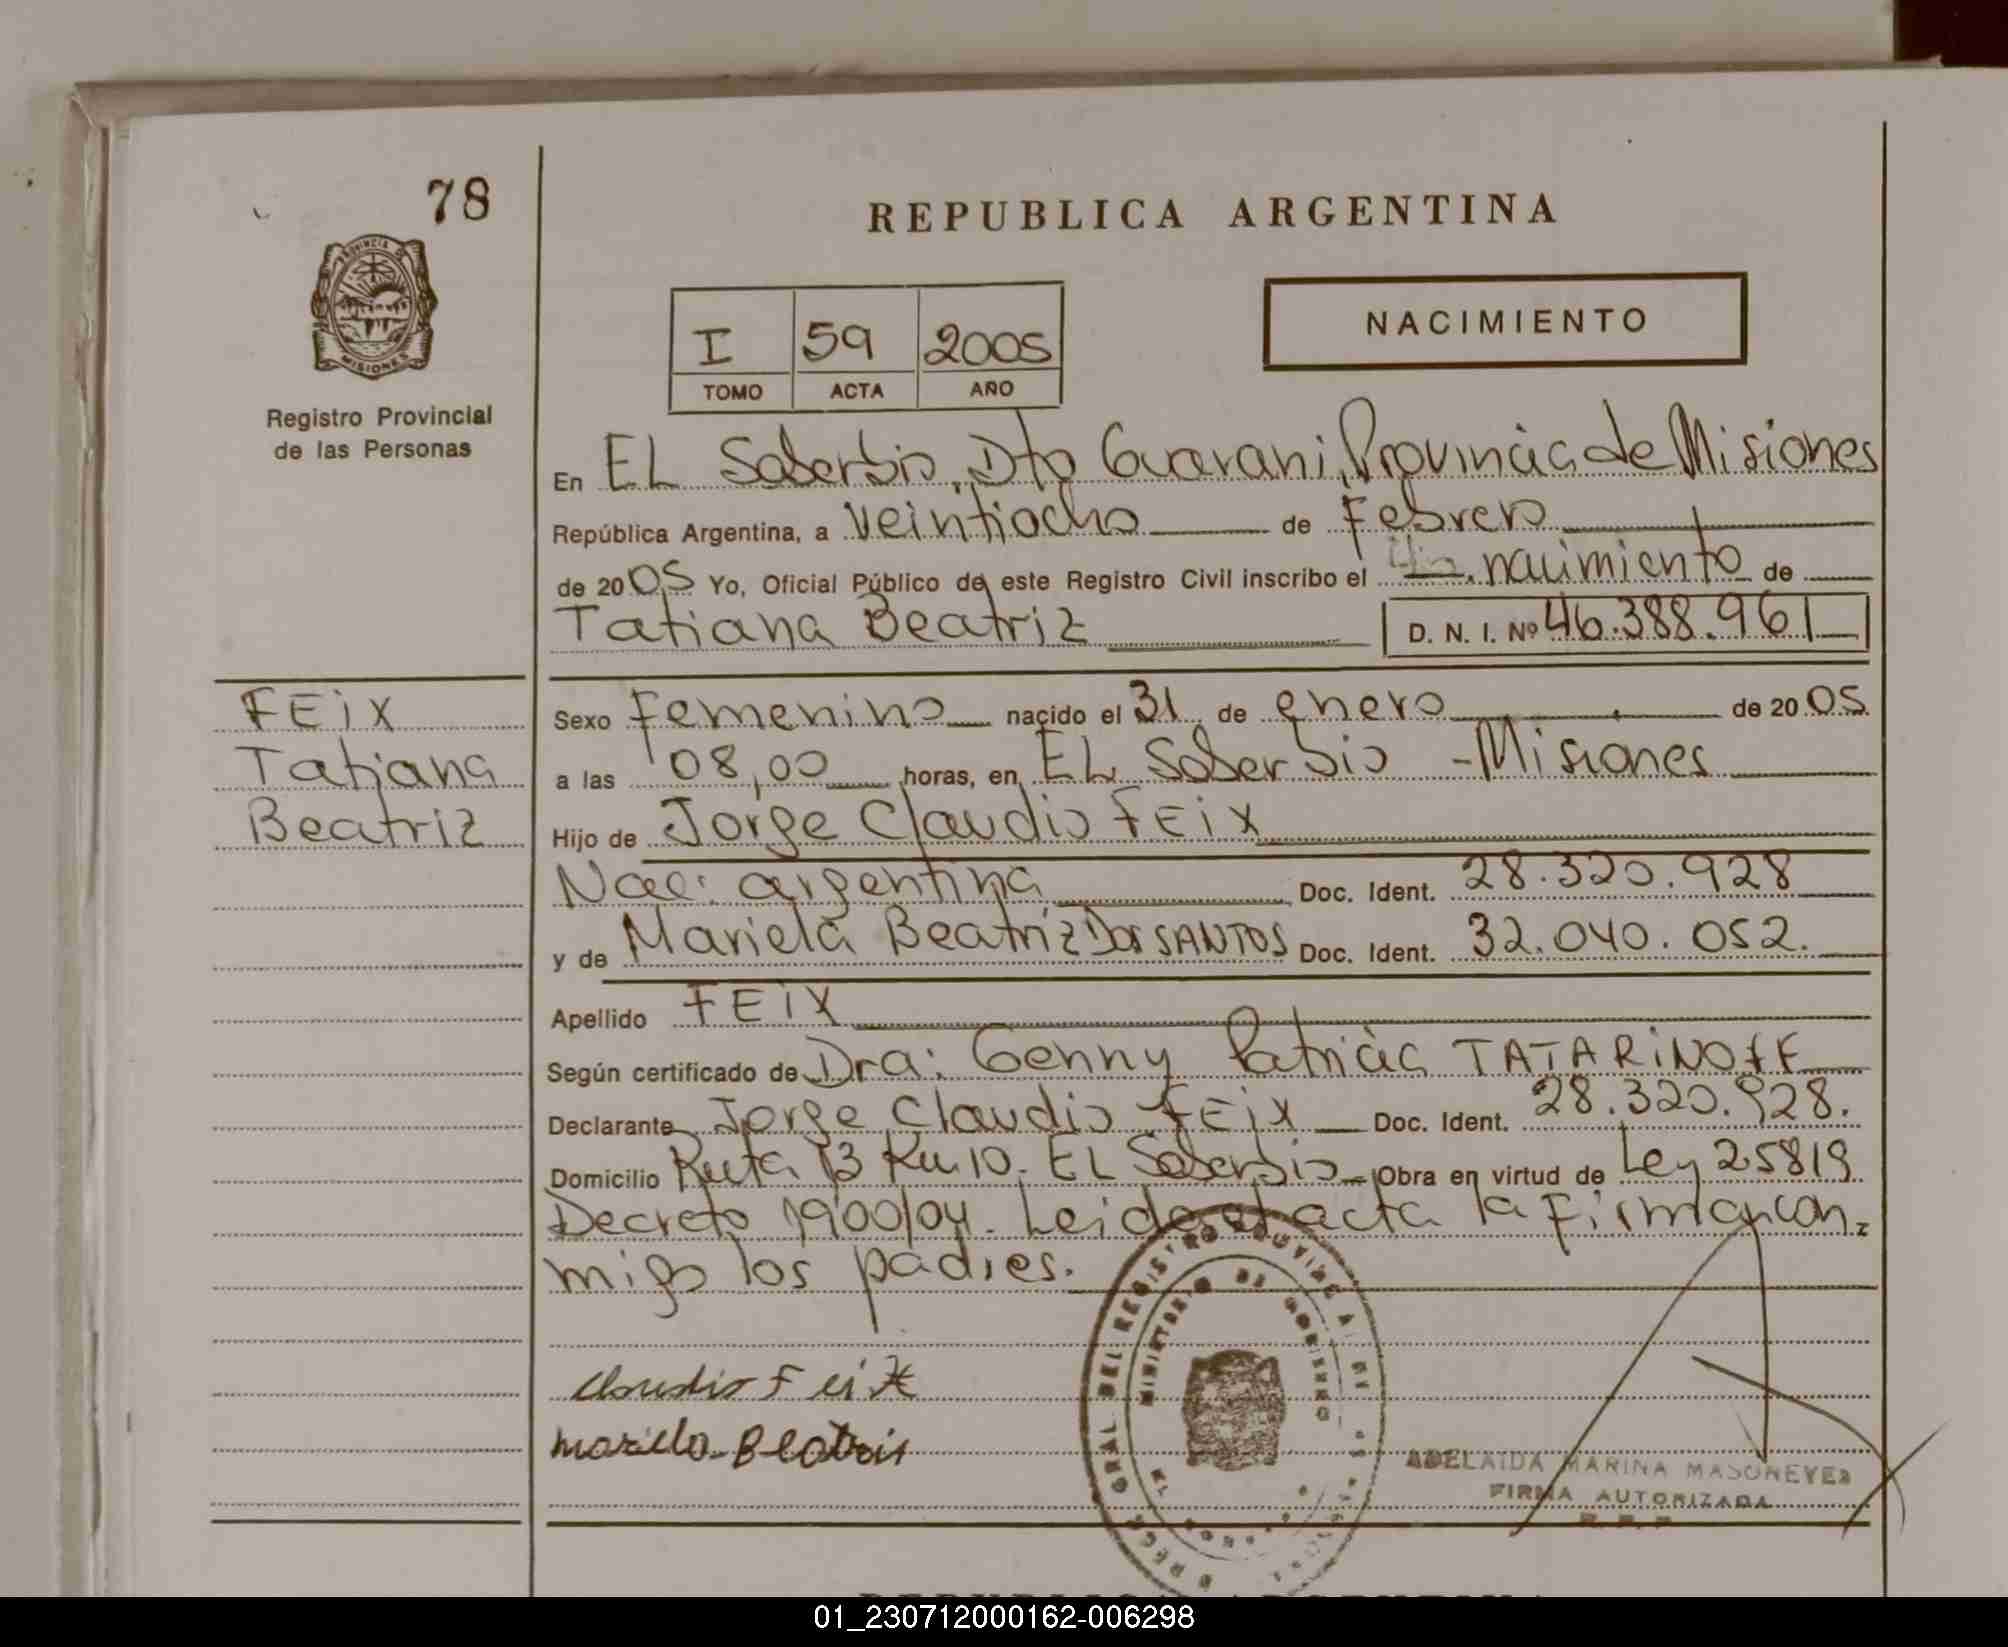 78
PROVINCIA DE
MISIONES
Registro Provincial
de las Personas
REPUBLICA ARGENTINA
I 59 2005
TOMO ACTA AÑO
NACIMIENTO
En EL Soberbio, Dto Guarani, Provincia de Misiones
República Argentina, a veintiocho de Febrero
de 2005 Yo, Oficial Público de este Registro Civil inscribo el nacimiento de
Tatiana Beatriz D. N. I. Nº 46.388.961
FEiX
Tatiana
Beatriz
Sexo Femenino nacido el 31 de enero de 2005
a las 08,00 horas, en EL Soberbio - Misiones
Hijo de Jorge Claudio FEiX
Nac: argentina Doc. Ident. 28.320.928
y de Mariela Beatriz Dos SANTOS Doc. Ident. 32.040.052.
Apellido FEiX
Según certificado de Dra: Genny Patricia TATARiNOFF
Declarante Jorge Claudio FEiX Doc. Ident. 28.320.928.
Domicilio Ruta 13 Km 10. EL Soberbio Obra en virtud de Ley 25819
Decreto 1900/04. Leida el acta la Firman con
migo los padres.
Claudio Feix
Mariela Beatris
GRAL DEL REGISTRO
MINISTERIO DE GOBIERNO
ADELAIDA MARINA
FIRMA AUTORIZADA
01_230712000162-006298